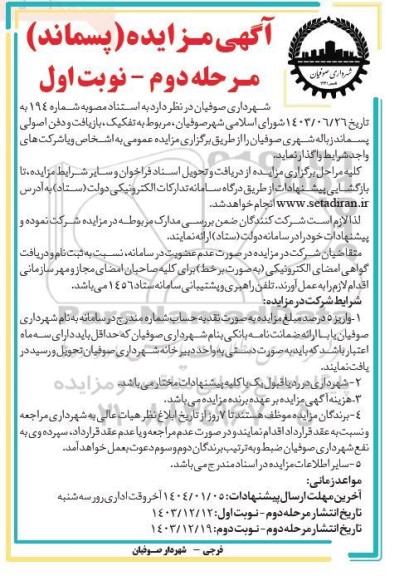 آگهی مزایده (پسماند)
مرحله دوم - نوبت اول
شهرداری صوفیان
شهرداری صوفیان در نظر دارد به استناد مصوبه شماره ۱۹۴ به
تاریخ ۱۴۰۳/۰۶/۲۶ شورای اسلامی شهر صوفیان ، مربوط به تفکیک ، بازیافت و دفن اصولی
پسماند زباله شهری صوفیان را از طریق برگزاری مزایده عمومی به اشخاص و یا شرکت های
واجد شرایط واگذار نماید.
کلیه مراحل برگزاری مزایده از دریافت و تحویل اسناد فراخوان و سایر شرایط مزایده ، تا
بازگشایی پیشنهادات از طریق درگاه سامانه تدارکات الکترونیکی دولت (ستاد) به آدرس
www.setadiran.ir انجام خواهد شد.
لذا لازم است شرکت کنندگان ضمن بررسی مدارک مربوطه در مزایده شرکت نموده و
پیشنهادات خود را در سامانه دولت (ستاد) ارائه نمایند.
متقاضیان شرکت در مزایده در صورت عدم عضویت در سامانه ، نسبت به ثبت نام و دریافت
گواهی امضای الکترونیکی (به صورت برخط) برای کلیه صاحبان امضای مجاز و مهر سازمانی
اقدام لازم را به عمل آورند. تلفن راهبری و پشتیبانی سامانه ستاد ۱۴۵۶ می باشد.
شرایط شرکت در مزایده:
۱- واریز ۵ درصد مبلغ مزایده به صورت نقد به حساب شماره مندرج در سامانه به نام شهرداری
صوفیان یا با ارائه ضمانت نامه بانکی بنام شهرداری صوفیان که حداقل باید دارای سه ماه
اعتبار باشد که باید به صورت دستی به واحد دبیرخانه شهرداری صوفیان تحویل و رسید در
یافت نمایند.
۲- شهرداری در رد یا قبول یک یا کلیه پیشنهادات مختار می باشد.
۳- هزینه آگهی مزایده بر عهده برنده مزایده می باشد.
۴- برندگان مزایده موظف هستند تا ۷ روز از تاریخ ابلاغ نظر هیات عالی به شهرداری مراجعه
و نسبت به عقد قرارداد اقدام نمایند و در صورت عدم مراجعه و یا عدم عقد قرارداد، سپرده وی به
نفع شهرداری صوفیان ضبط و به ترتیب برندگان دوم و سوم دعوت بعمل خواهد آمد.
۵- سایر اطلاعات مزایده در اسناد مندرج می باشد.
مواعد زمانی:
آخرین مهلت ارسال پیشنهادات : ۱۴۰۴/۰۱/۰۵ آخر وقت اداری روز سه شنبه
تاریخ انتشار مرحله دوم - نوبت اول: ۱۴۰۳/۱۲/۱۲
تاریخ انتشار مرحله دوم - نوبت دوم: ۱۴۰۳/۱۲/۱۹
فرجی - شهردار صوفیان